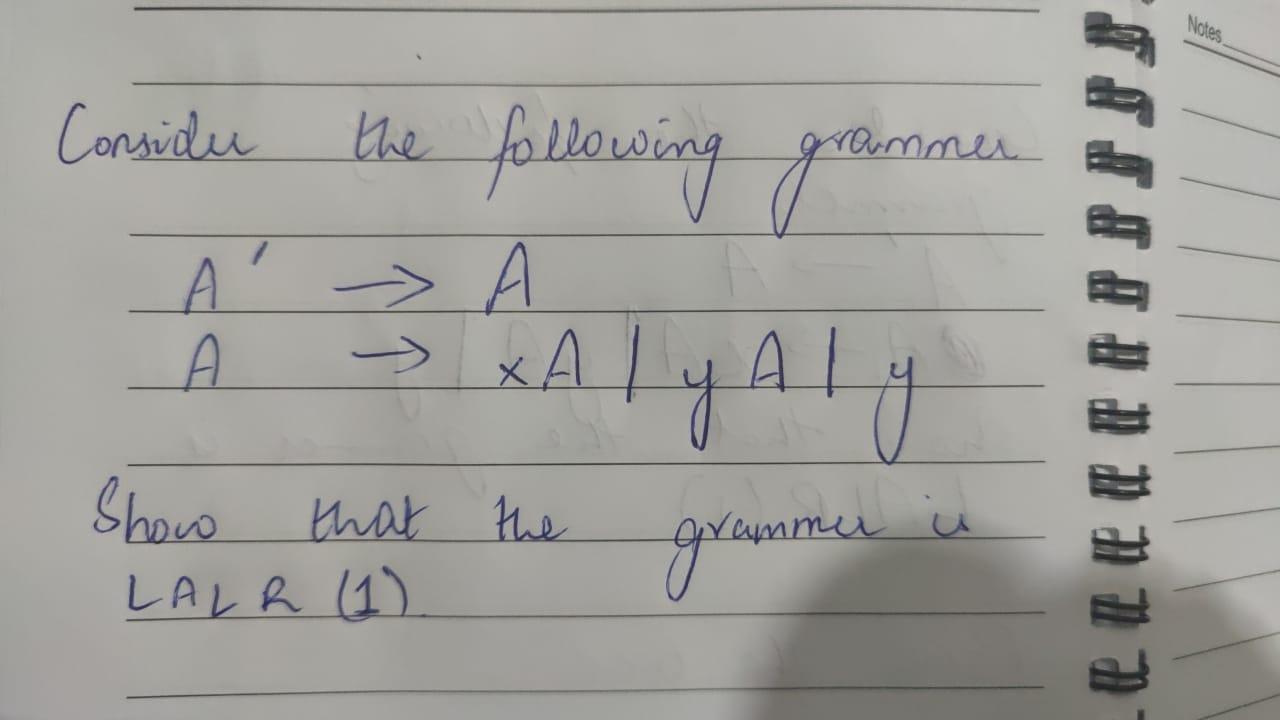 Notes
Consider the following grammer
A' → A
A → xA | yA | y
Show that the grammer is
LALR (1).